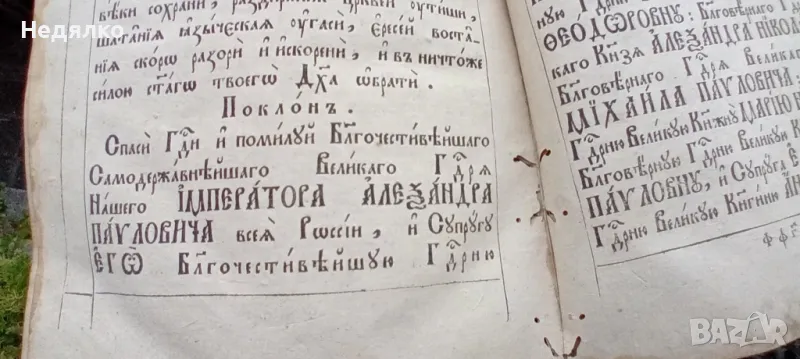 Недялко
вѣки сохрани, раздираніѧ церквей оутиши,
шатаніѧ ѧзыческаѧ оугаси, Єресей воста-
ніѧ скорѡ разори и искорени, и въ ничтоже
силою ст҃агѡ твоегѡ Дх҃а ѡбрати.
Поклонъ.
Спаси Гд҃и и помилуй Благочестивѣйшаго
Самодержавнѣйшаго Великаго Гдⷭ҇рѧ
Нашего ІМПЕРАТОРА АЛЕѮАНДРА
ПАУЛОВИЧА всеѧ Рѡссіи, и Супругу
ЕГѠ Благочестивѣйшую Гдⷭ҇рню
ную Гдⷭ҇рню
ѲЕОДѠРОВНУ: Благовѣрнаго Гдⷭ҇рѧ
каго Кнѧзѧ АЛЕѮАНДРА НІКОЛА
Благовѣрнаго Гдⷭ҇рѧ Великаго
МІХАИЛА ПАУЛОВИЧА:
Гдⷭ҇рню Великую Кнѧжну МАРІЮ
Благовѣрную Гдⷭ҇рню Великую К
ПАУЛОВНУ, и Супруга Е
Гдⷭ҇рню Великую Кнѧгиню АН
BAZAR
bg